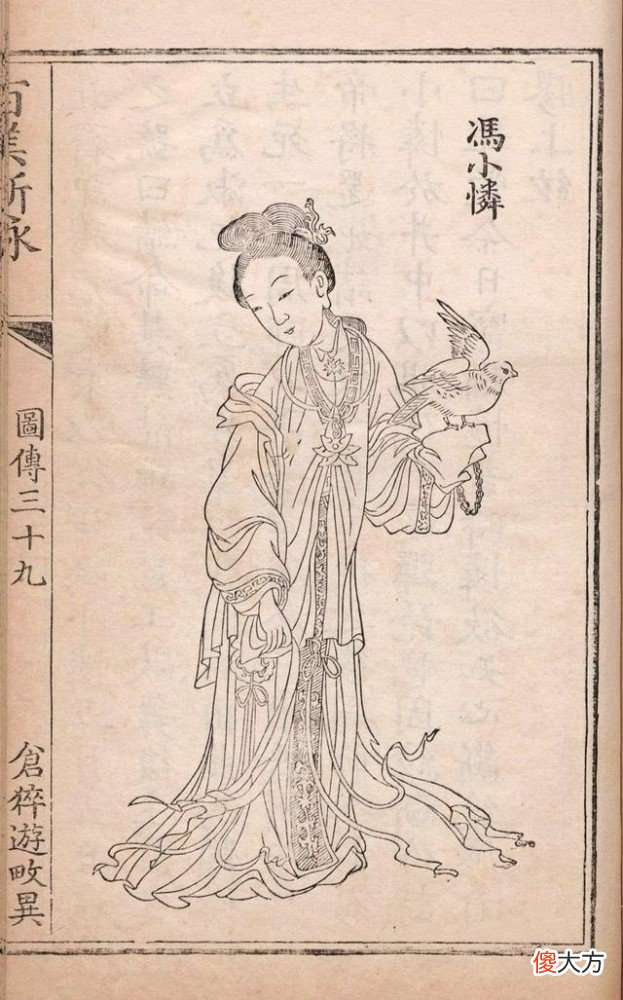 馮小憐
百美新詠
圖傳三十九
倉猝遊畋異
傻大方